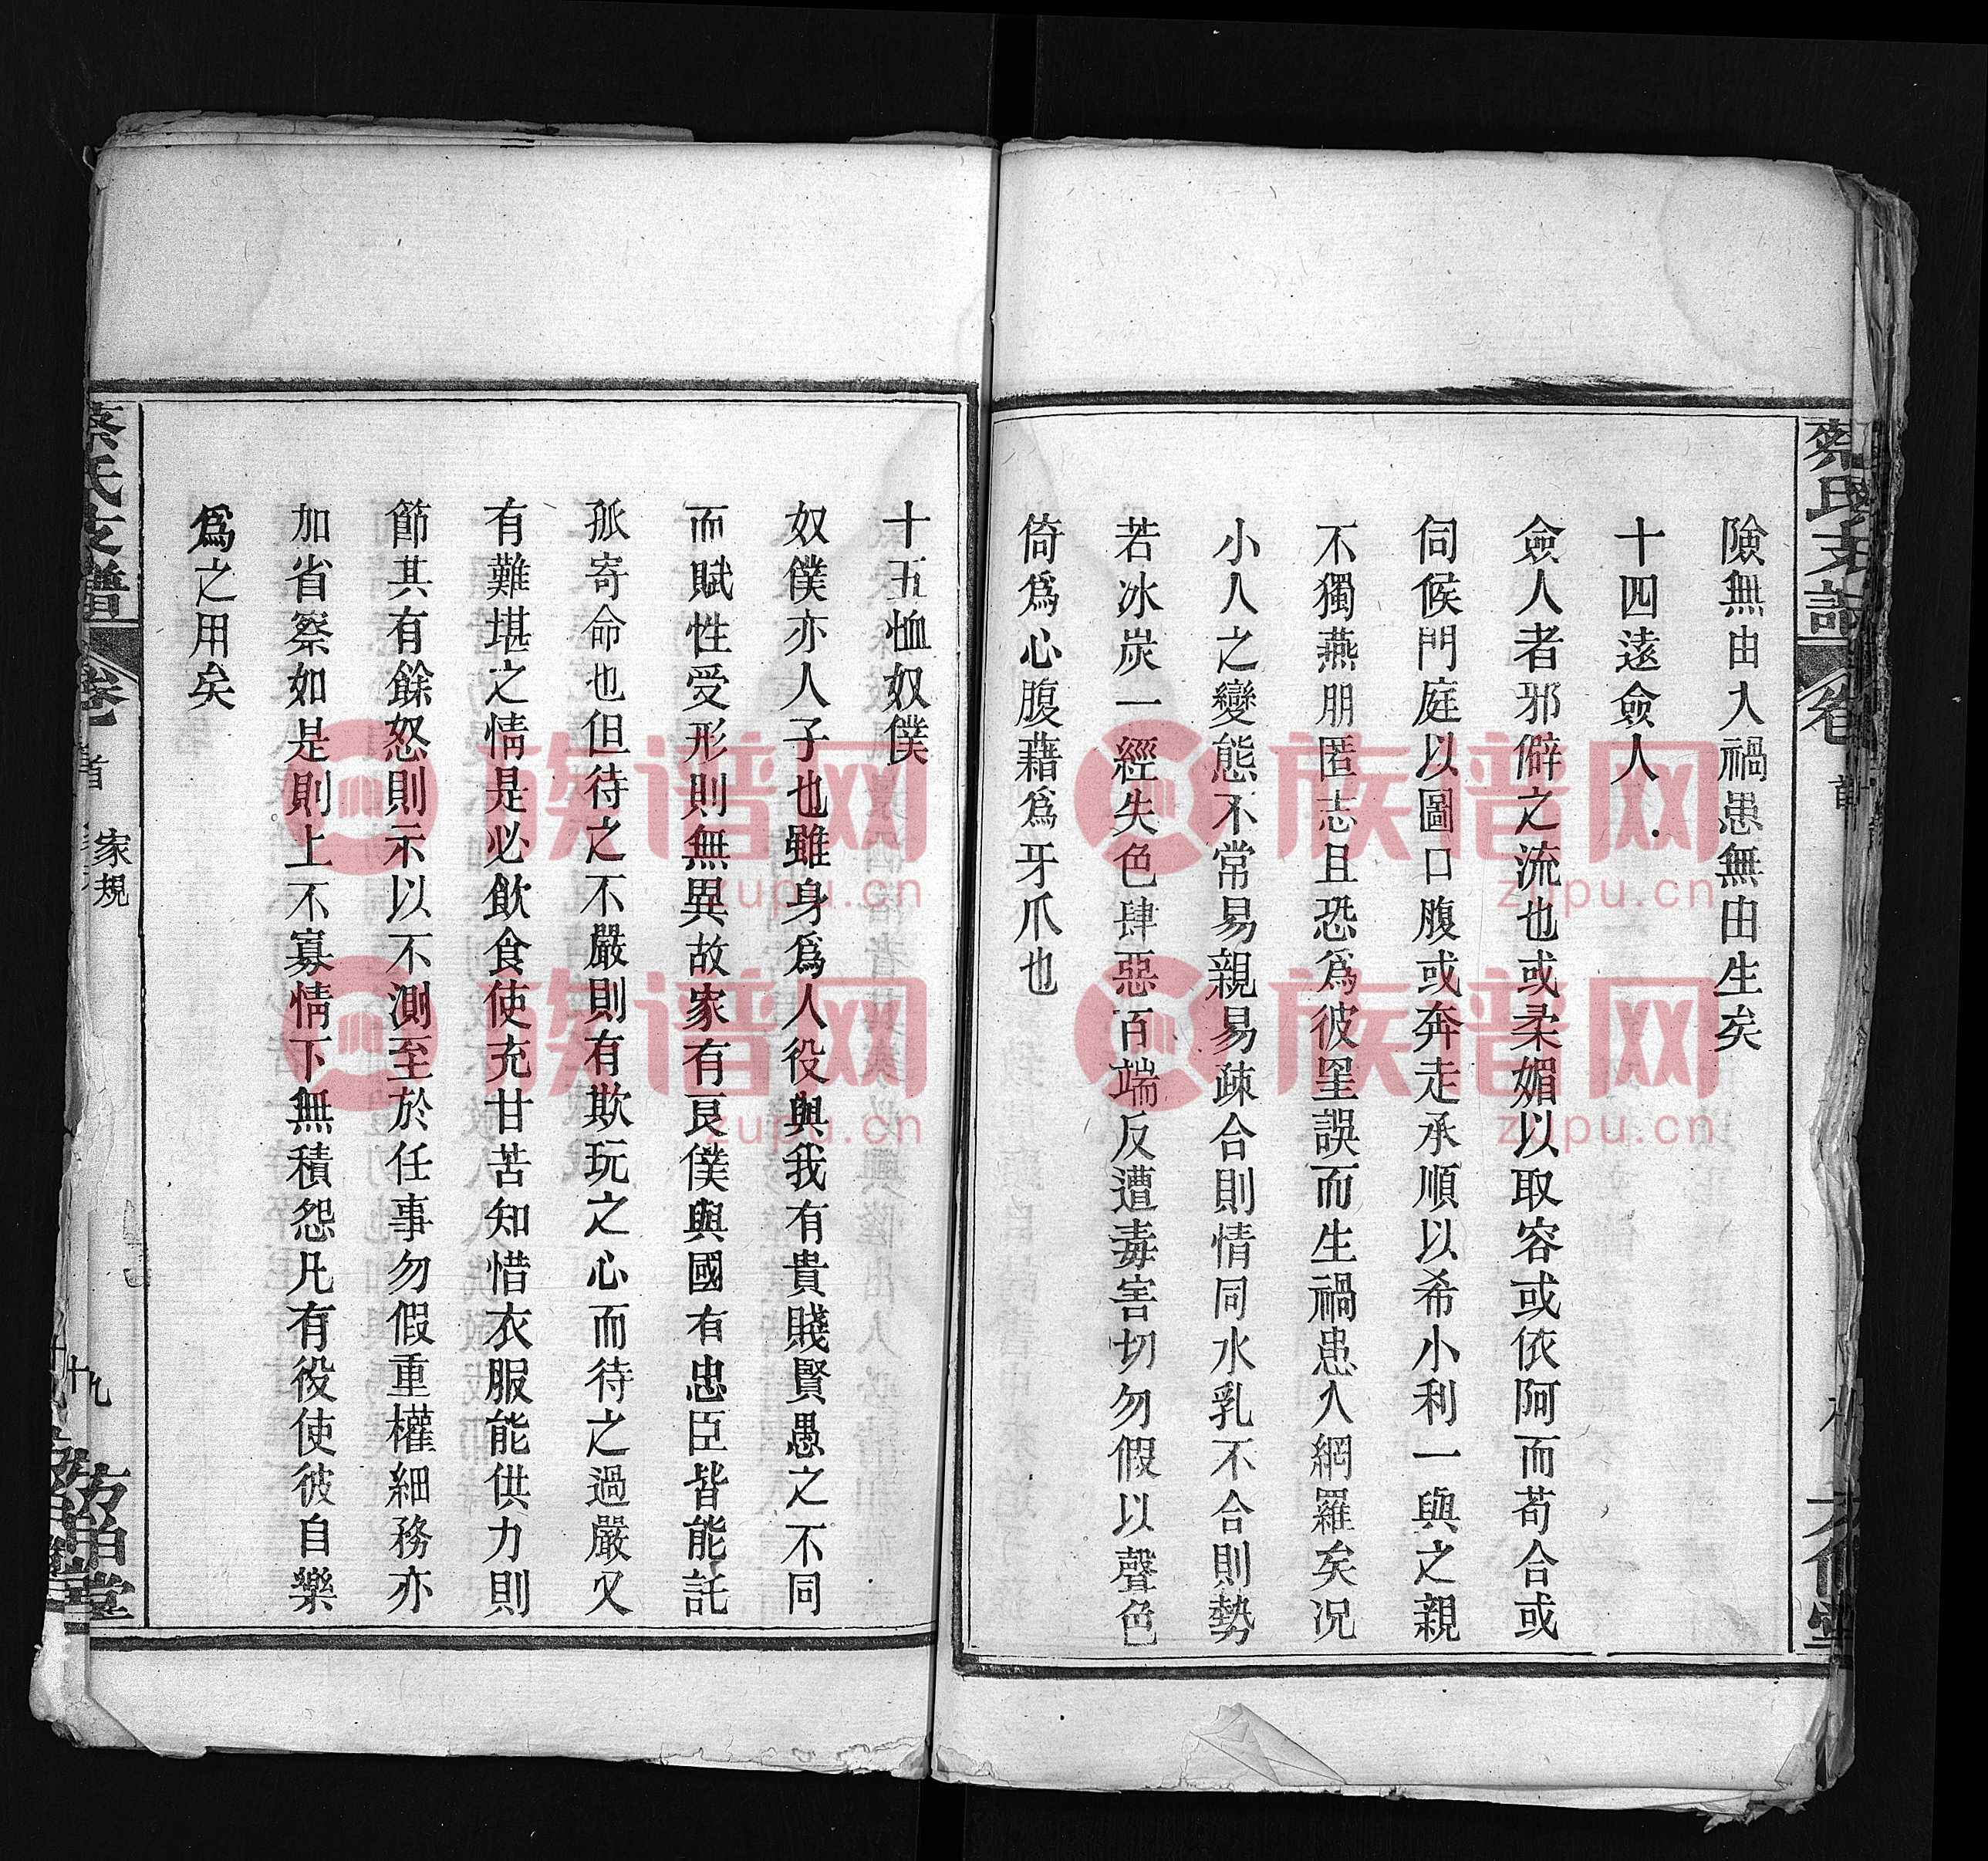 險無由入禍患無由生矣
十四遠僉人
僉人者邪僻之流也或柔媚以取容或依阿而苟合或
伺候門庭以圖口腹或奔走承順以希小利一與之親
不獨燕朋匿志且恐爲彼罣誤而生禍患入網羅矣况
小人之變態不常易親易疎合則情同水乳不合則勢
若冰炭一經失色肆惡百端反遭毒害切勿假以聲色
倚爲心腹藉爲牙爪也
十五恤奴僕
奴僕亦人子也雖身爲人役與我有貴賤賢愚之不同
而賦性受形則無異故家有良僕與國有忠臣皆能託
孤寄命也但待之不嚴則有欺玩之心而待之過嚴又
有難堪之情是必飲食使充甘苦知惜衣服能供力則
節其有餘怒則示以不測至於任事勿假重權細務亦
加省察如是則上不寡情下無積怨凡有役使彼自樂
爲之用矣
蔡氏支譜
卷首
家規
十九
族谱网
zupu.cn
族谱网
zupu.cn
族谱网
zupu.cn
族谱网
zupu.cn